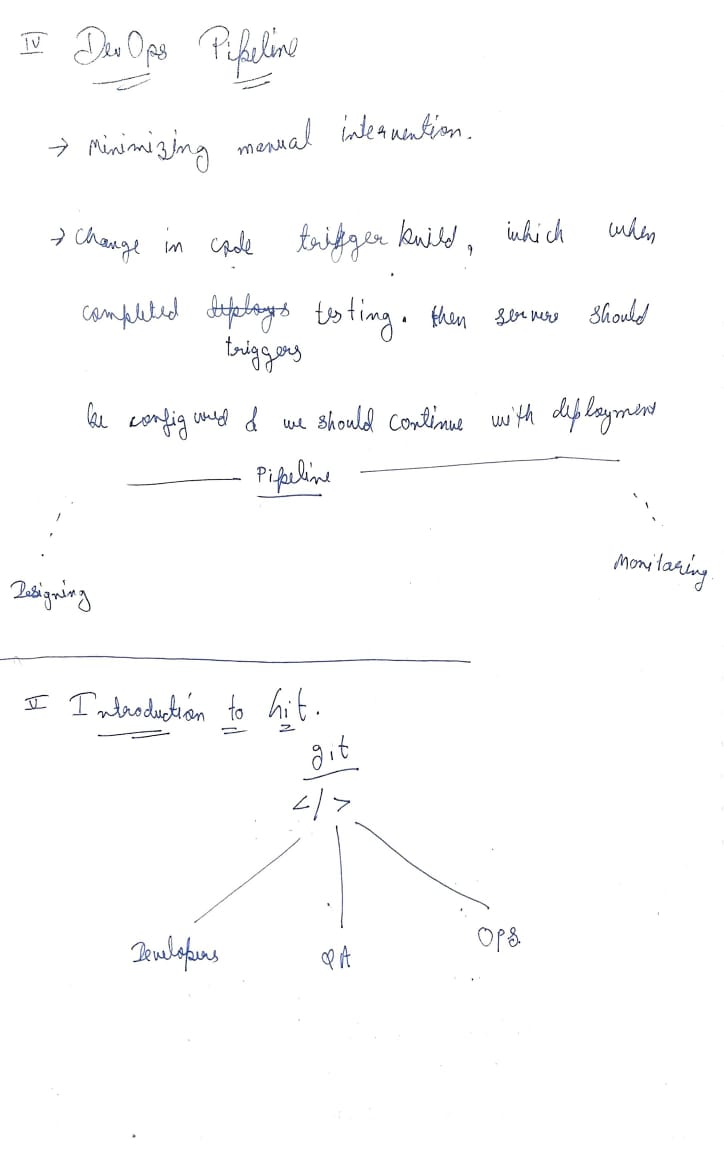 IV DevOps Pipeline
→ Minimizing manual intervention.
→ change in code trigger build, which when
completed deploys testing. then servers should
triggers
be configured & we should continue with deployment
Pipeline
Designing
Monitoring.
V Introduction to Git.
git
</>
Developers
QA
OPS.